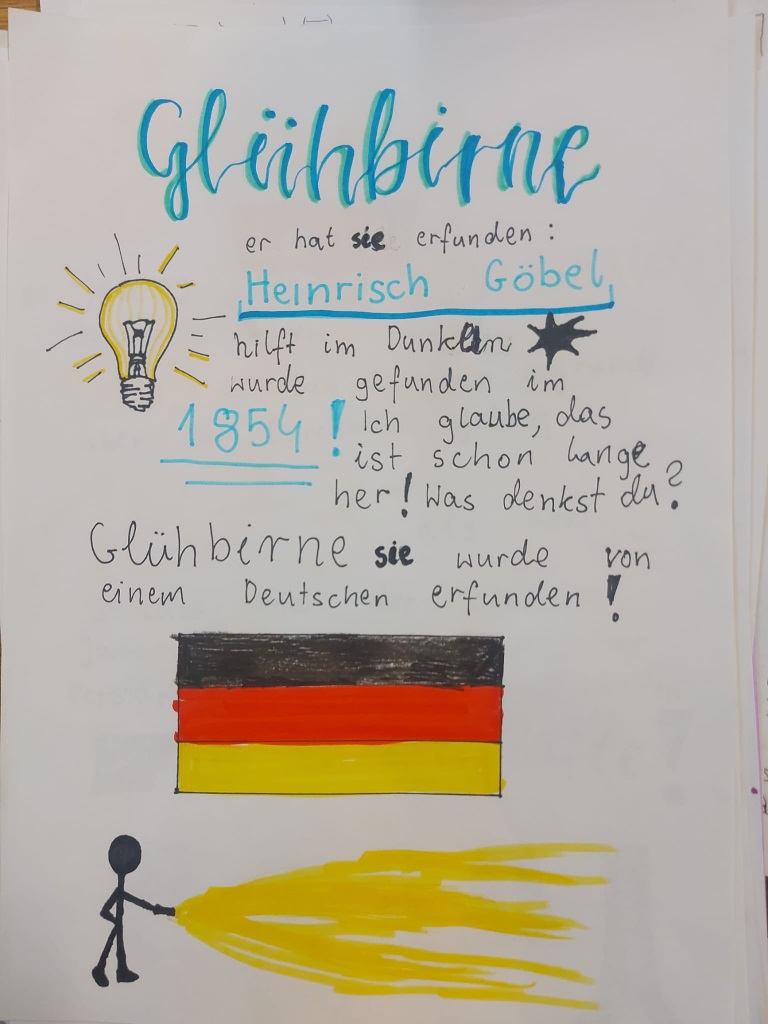 Glühbirne
er hat sie erfunden:
Heinrisch Göbel
hilft im Dunkeln
wurde gefunden im
1854! Ich glaube, das
ist schon lange
her! Was denkst du?
Glühbirne sie wurde von
einem Deutschen erfunden!